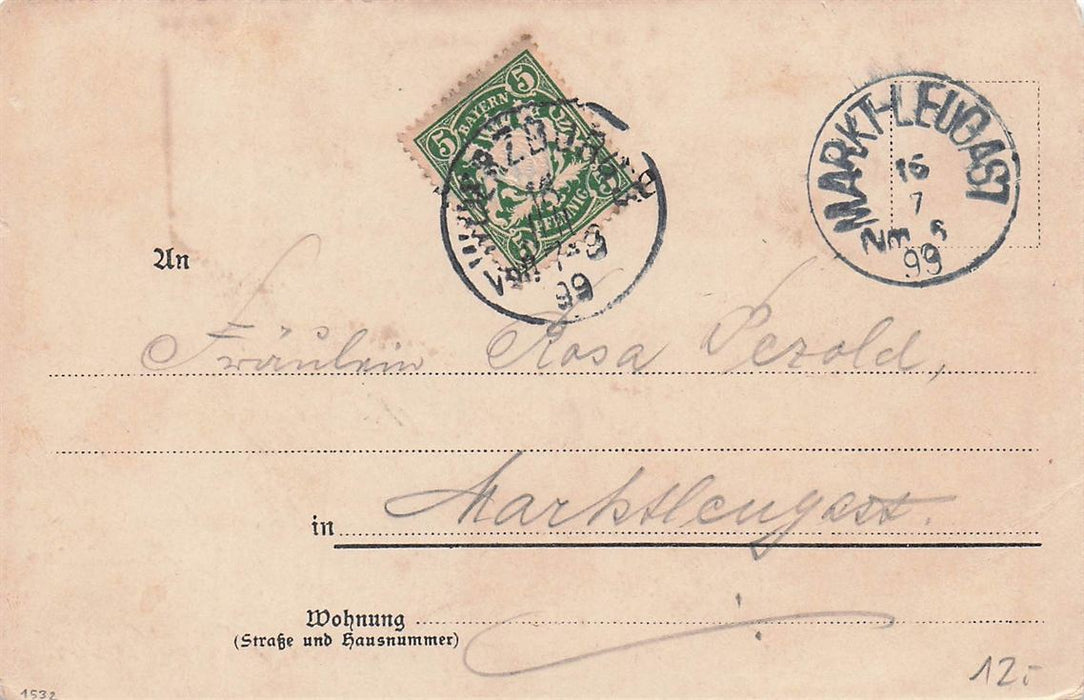 5 BAYERN 5
5 PFENNIG 5
WÜRZBURG
Vm 7-8
99
MARKT-LEUGAST
16
7
Nm 5
99
An
Fräulein Rosa Pezold,
in Marktleugast.
Wohnung
(Straße und Hausnummer)
12.-
1532